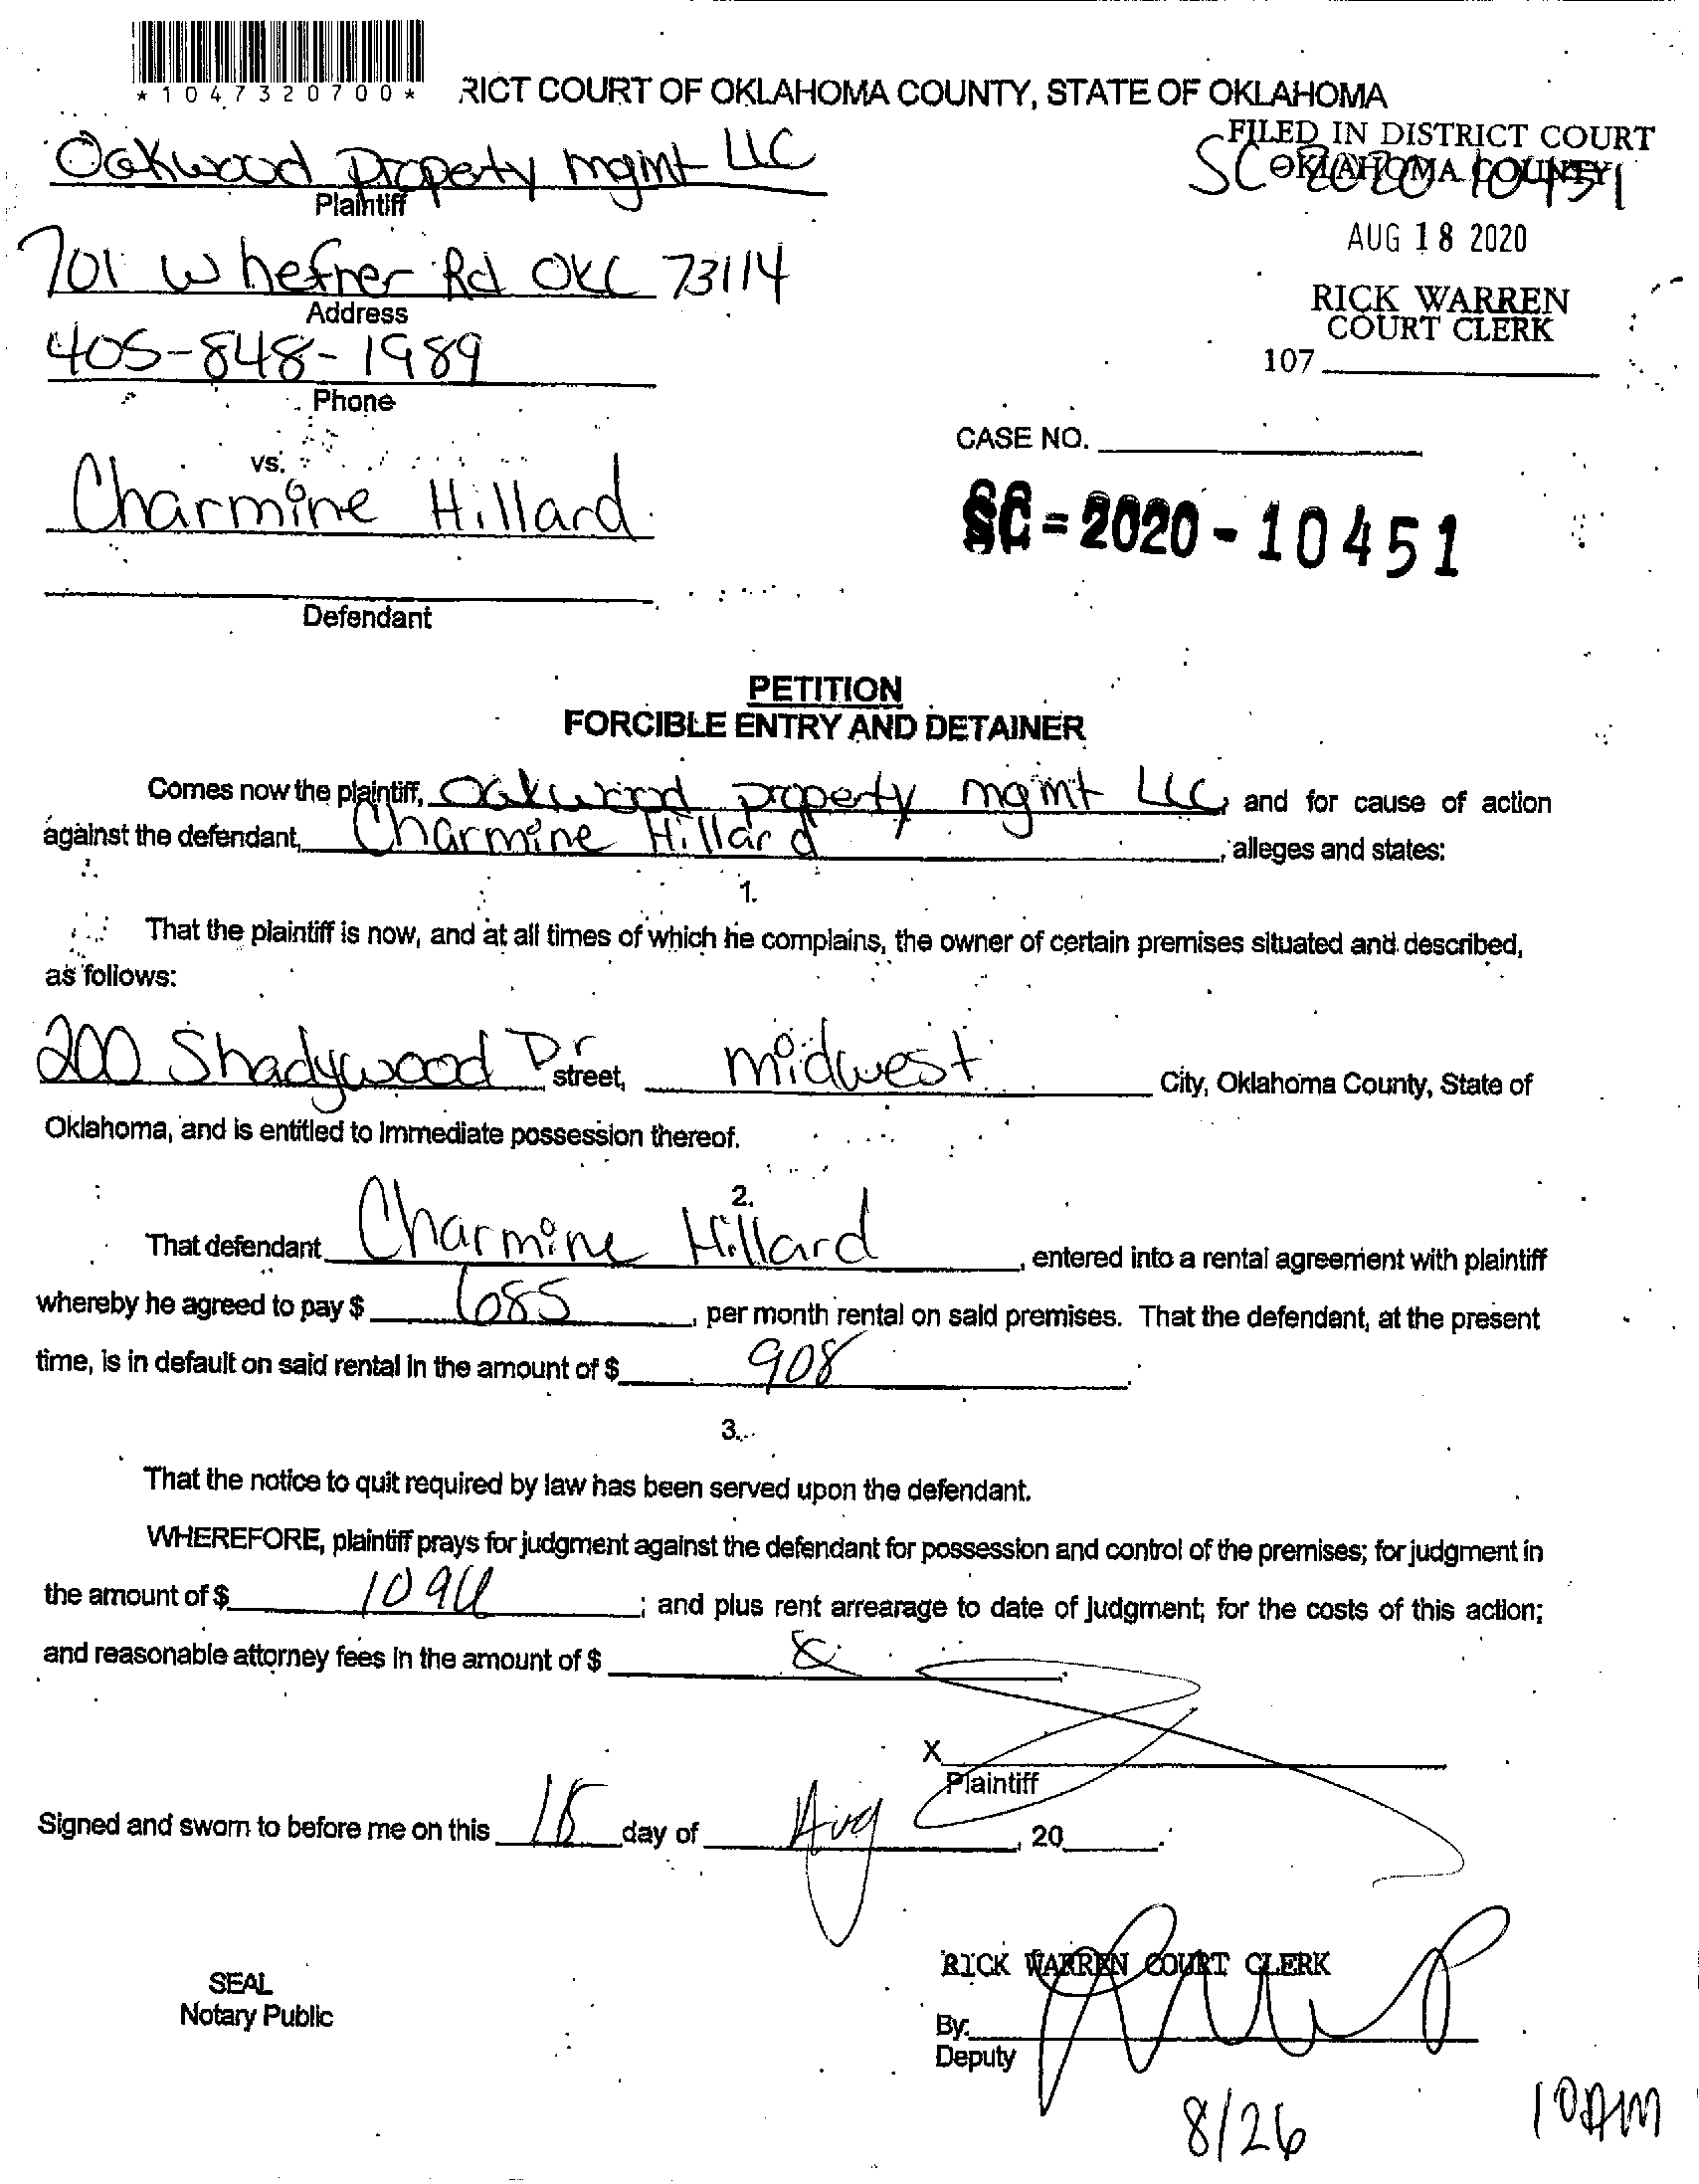 *1047320700*
RICT COURT OF OKLAHOMA COUNTY, STATE OF OKLAHOMA
FILED IN DISTRICT COURT
OKLAHOMA COUNTY
SC 2020 10451
Oakwood property mgmt LLC
Plaintiff
AUG 18 2020
701 W hefner Rd OKC 73114
Address
RICK WARREN
COURT CLERK
405-848-1989
107
Phone
CASE NO.
vs.
Charmine Hillard
SC-2020-10451
Defendant
PETITION
FORCIBLE ENTRY AND DETAINER
Comes now the plaintiff, Oakwood property mgmt LLC, and for cause of action
against the defendant, Charmine Hillard, alleges and states:
1.
That the plaintiff is now, and at all times of which he complains, the owner of certain premises situated and described,
as follows:
200 Shadywood Dr street, midwest City, Oklahoma County, State of
Oklahoma, and is entitled to immediate possession thereof.
2.
That defendant Charmine Hillard, entered into a rental agreement with plaintiff
whereby he agreed to pay $ 685, per month rental on said premises. That the defendant, at the present
time, is in default on said rental in the amount of $ 908.
3.
That the notice to quit required by law has been served upon the defendant.
WHEREFORE, plaintiff prays for judgment against the defendant for possession and control of the premises; for judgment in
the amount of $ ; and plus rent arrearage to date of judgment; for the costs of this action;
and reasonable attorney fees in the amount of $
X
Plaintiff
Signed and sworn to before me on this 18 day of Aug, 20 .
RICK WARREN COURT CLERK
SEAL
Notary Public
By:
Deputy
8/26 10AM